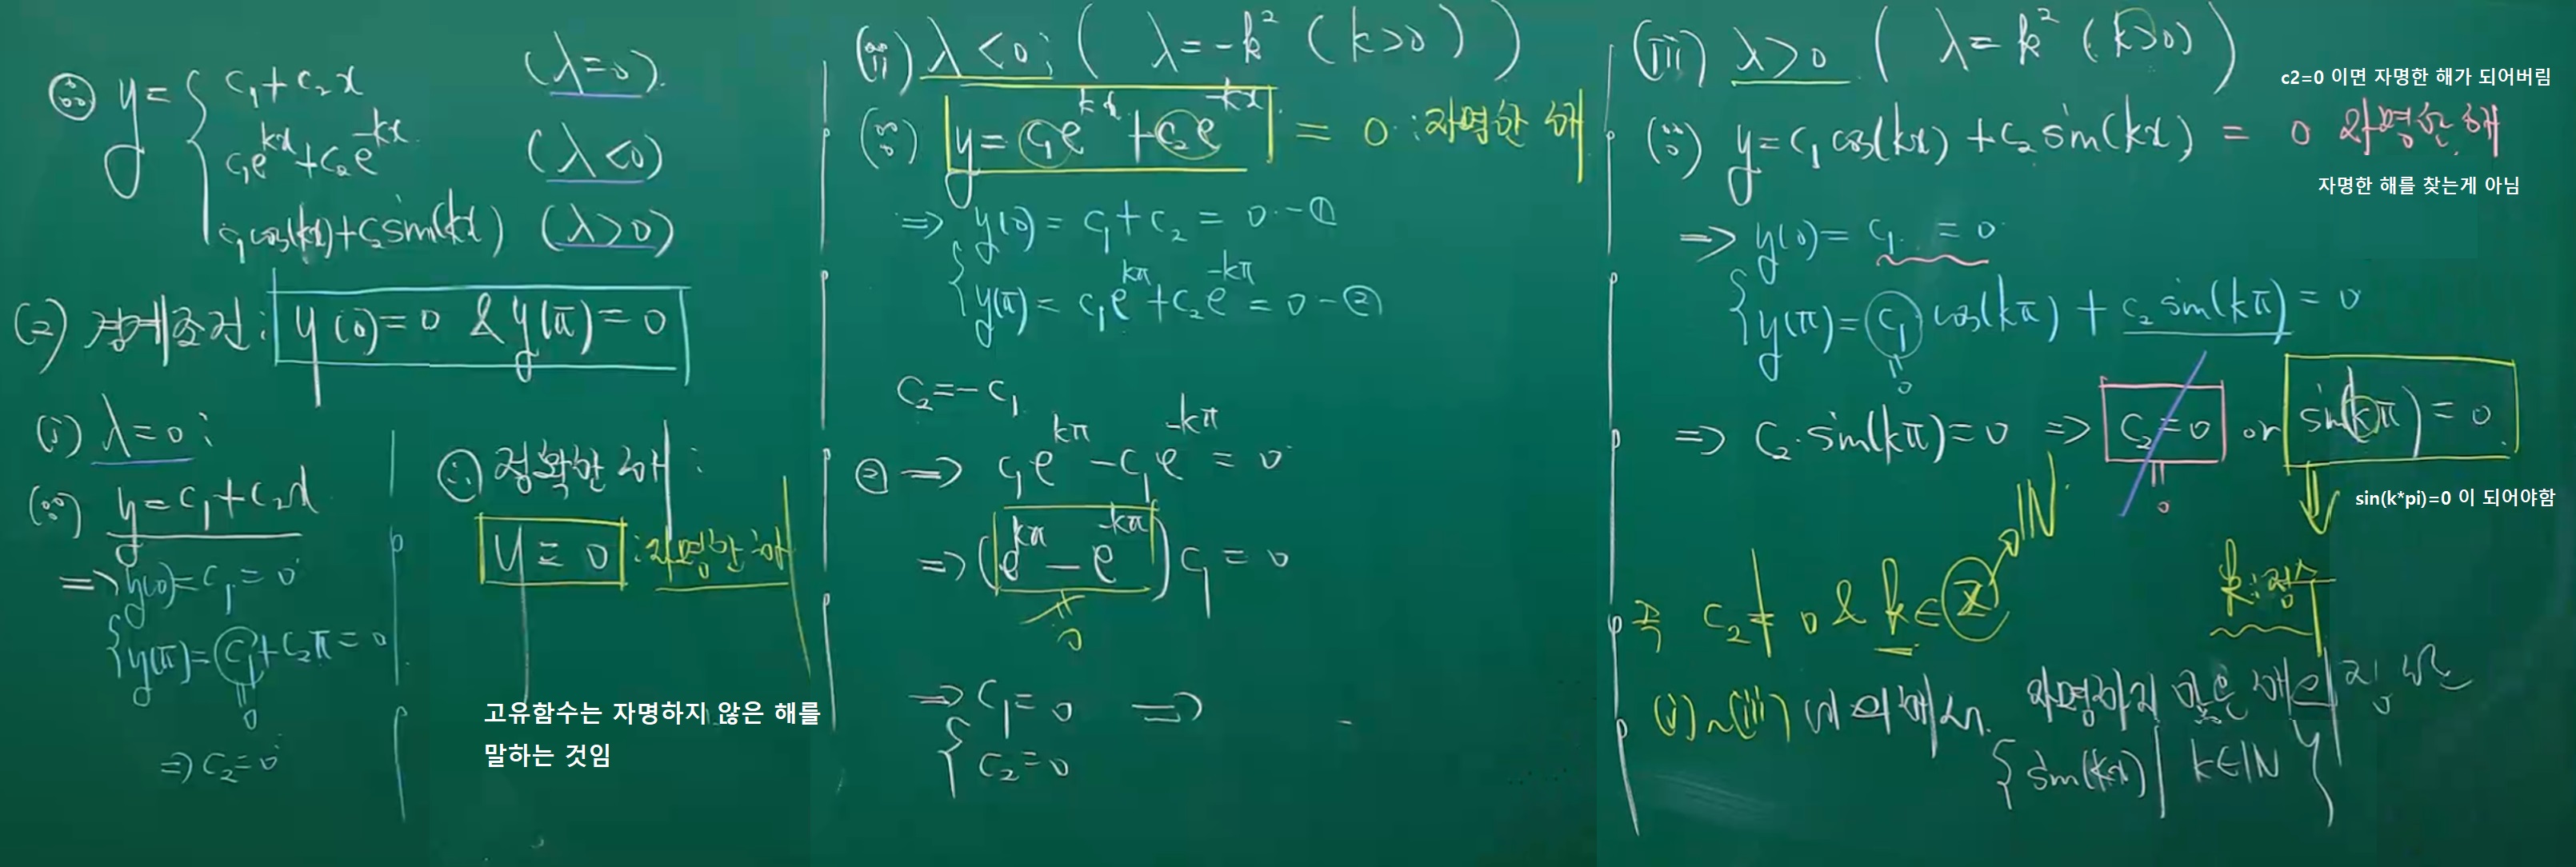 ∴ y = { c₁ + c₂x (λ=0)
c₁e^{kx} + c₂e^{-kx} (λ<0)
c₁cos(kx) + c₂sin(kx) (λ>0)
(2) 경계조건 : y(0)=0 & y(π)=0
(i) λ=0 ;
(∵) y = c₁ + c₂x
⇒ { y(0) = c₁ = 0
y(π) = c₁ + c₂π = 0
" 0
⇒ c₂ = 0
∴ 정확한 해 :
y = 0 : 자명한 해
고유함수는 자명하지 않은 해를
말하는 것임
(ii) λ<0 ; ( λ = -k² (k>0) )
(∵) y = c₁e^{kx} + c₂e^{-kx} = 0 : 자명한 해
⇒ { y(0) = c₁ + c₂ = 0 - ①
y(π) = c₁e^{kπ} + c₂e^{-kπ} = 0 - ②
c₂ = -c₁
② ⇒ c₁e^{kπ} - c₁e^{-kπ} = 0
⇒ (e^{kπ} - e^{-kπ}) c₁ = 0
≠ 0
⇒ { c₁ = 0 ⇒
c₂ = 0
(iii) λ>0 ( λ = k² (k>0) )
c2=0 이면 자명한 해가 되어버림
(∵) y = c₁cos(kx) + c₂sin(kx) = 0 자명한 해
자명한 해를 찾는게 아님
⇒ { y(0) = c₁ = 0
y(π) = c₁cos(kπ) + c₂sin(kπ) = 0
" 0
⇒ c₂·sin(kπ) = 0 ⇒ c₂ = 0 or sin(kπ) = 0
" 0
sin(k*pi)=0 이 되어야함
k : 정수
즉 c₂ ≠ 0 & k ∈ ℤ → ℕ
(i)~(iii)에 의해서 자명하지 않은 해의 집합은
{ sin(kx) | k∈ℕ }